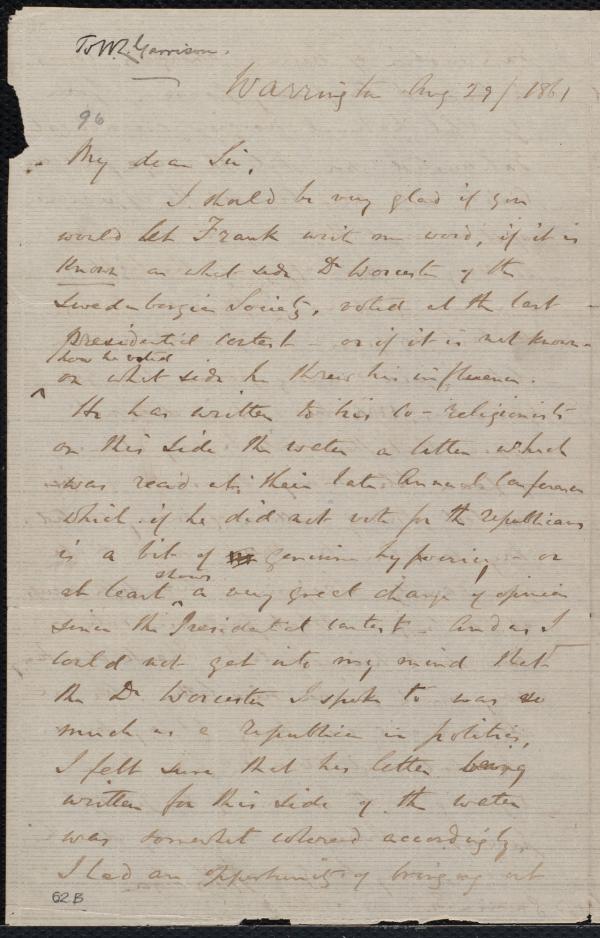 To W. L. Garrison.
Warrington Aug 29/1861
96
My dear Sir,
I should be very glad if you
would let Frank write me word, if it is
known on what side Dr Worcester of the
Swedenborgian Society, voted at the last
presidential contest - or if it is not known -
how he voted
on what side he threw his influence.
He has written to his Co-religionists
on this side the water a letter which
was read at their late Annual Conference
which if he did not vote for the republicans
is a bit of genuine hypocrisy - or
shows
at least a very great change of opinion
since the Presidential contest. And as I
could not get into my mind that
the Dr Worcester I spoke to was so
much as a republican in politics,
I felt sure that his letter being
written for this side of the water
was somewhat colored accordingly.
I had an opportunity of bringing out
62 B